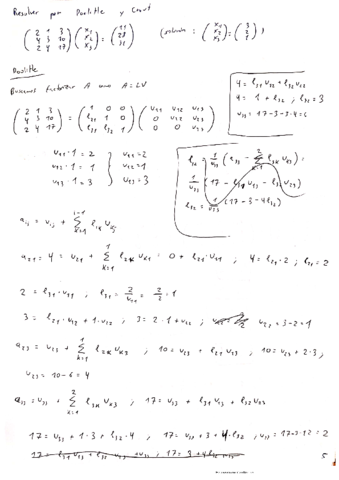 Resolver por Doolittle y Crout
( 2 1 3 ; 4 3 10 ; 2 4 17 ) ( x₁ ; x₂ ; x₃ ) = ( 11 ; 28 ; 31 ) (solución: ( x₁ ; x₂ ; x₃ ) = ( 3 ; 2 ; 1 ) )
Doolittle
Buscamos factorizar A como A=LU
( 2 1 3 ; 4 3 10 ; 2 4 17 ) = ( 1 0 0 ; l₂₁ 1 0 ; l₃₁ l₃₂ 1 ) ( u₁₁ u₁₂ u₁₃ ; 0 u₂₂ u₂₃ ; 0 0 u₃₃ )
4 = l₃₁u₁₂ + l₃₂u₂₂
4 = 1 + l₃₂ ; l₃₂ = 3
u₃₃ = 17-3-3·4=
u₁₁·1 = 2 } u₁₁=2
u₁₂·1 = 1 } u₁₂=1
u₁₃·1 = 3 } u₁₃=3
aᵢⱼ = uᵢⱼ + Σ lᵢₖ uₖⱼ
a₂₁ = 4 = u₂₁ + Σ l₂ₖ uₖ₁ = 0 + l₂₁·u₁₁ ; 4 = l₂₁·2 ; l₂₁ = 2
2 = l₃₁·u₁₁ ; l₃₁ = 2/u₁₁ = 2/2 = 1
3 = l₂₁·u₁₂ + 1·u₂₂ ; 3 = 2·1 + u₂₂ ; u₂₂ = 3-2=1
a₂₃ = u₂₃ + Σ l₂ₖ uₖ₃ ; 10 = u₂₃ + l₂₁u₁₃ ; 10 = u₂₃ + 2·3 ;
u₂₃ = 10-6 = 4
a₃₃ = u₃₃ + Σ l₃ₖ uₖ₃ ; 17 = u₃₃ + l₃₁u₁₃ + l₃₂u₂₃
17 = u₃₃ + 1·3 + l₃₂·4 ; 17 = u₃₃ + 3 + 4·l₃₂ ; u₃₃ = 17-3-12 = 2
5